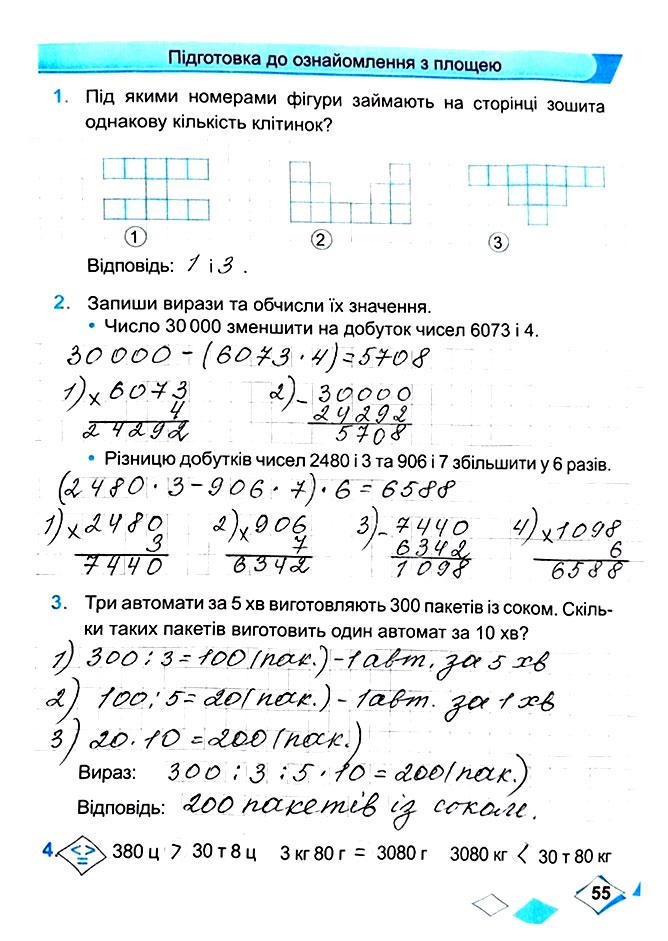 Підготовка до ознайомлення з площею
1. Під якими номерами фігури займають на сторінці зошита
однакову кількість клітинок?
1 2 3
Відповідь: 1 і 3 .
2. Запиши вирази та обчисли їх значення.
• Число 30 000 зменшити на добуток чисел 6073 і 4.
30000 - (6073 · 4) = 5708
1) × 6073 2) - 30000
4 24292
24292 5708
• Різницю добутків чисел 2480 і 3 та 906 і 7 збільшити у 6 разів.
(2480 · 3 - 906 · 7) · 6 = 6588
1) × 2480 2) × 906 3) - 7440 4) × 1098
3 7 6342 6
7440 6342 1098 6588
3. Три автомати за 5 хв виготовляють 300 пакетів із соком. Скіль-
ки таких пакетів виготовить один автомат за 10 хв?
1) 300 : 3 = 100 (пак.) - 1 авт. за 5 хв
2) 100 : 5 = 20 (пак.) - 1 авт. за 1 хв
3) 20 · 10 = 200 (пак.)
Вираз: 300 : 3 : 5 · 10 = 200 (пак.)
Відповідь: 200 пакетів із соком.
4. < > = 380 ц > 30 т 8 ц 3 кг 80 г = 3080 г 3080 кг < 30 т 80 кг
55